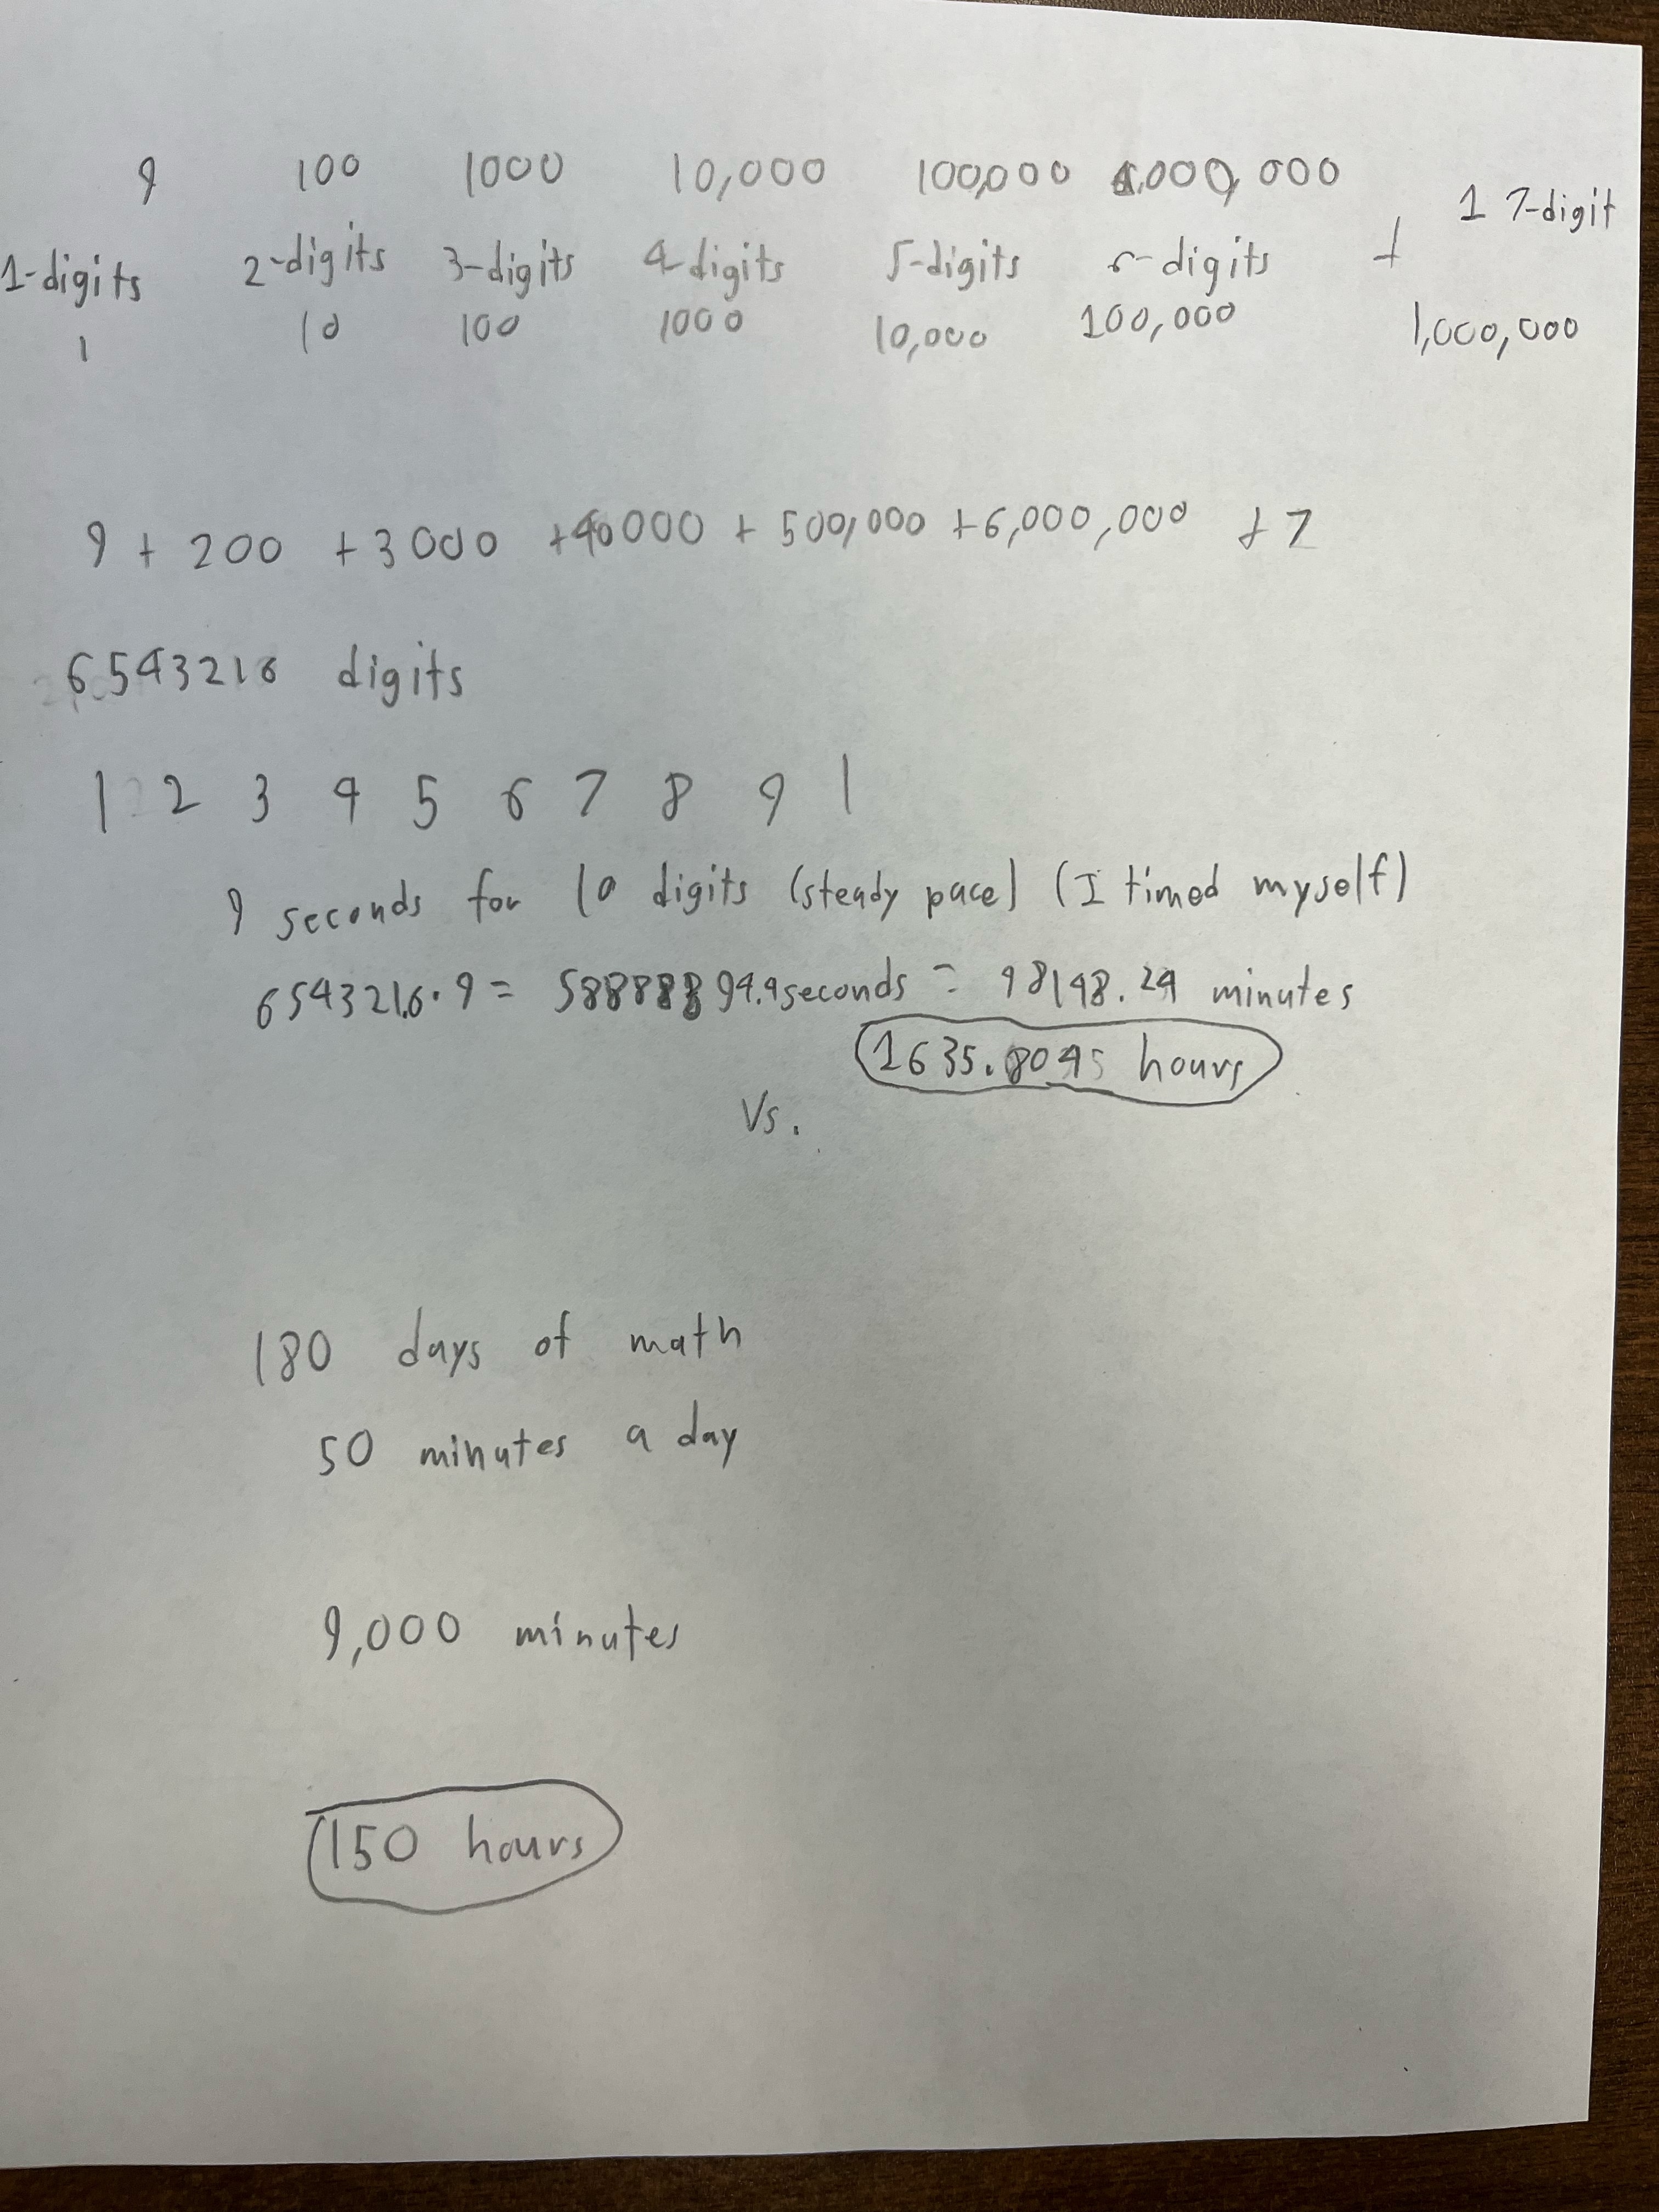 9 100 1000 10,000 100,000 1,000,000
1 7-digit
1-digits 2-digits 3-digits 4-digits 5-digits 6-digits +
1 10 100 1000 10,000 100,000 1,000,000
9 + 200 + 3000 + 40000 + 500,000 + 6,000,000 + 7
6543216 digits
1 2 3 4 5 6 7 8 9 1
9 seconds for 10 digits (steady pace) (I timed myself)
654321.6 · 9 = 5888894.4 seconds = 98148.24 minutes
1635.804 hours
Vs.
180 days of math
50 minutes a day
9,000 minutes
150 hours